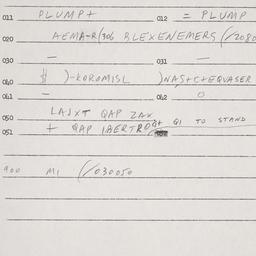 011 PLUMP+ 012 = PLUMP
020 AEMA-R(306 BLEXENEMERS (/2080
030 — 031 —
040 )-KOROMISL )NAS+C+EQVASER
041 — 042 O
050 LAJXT QAP ZAX
051 + QAP IAERTRO + QI TO STAND
900 MI (/030050